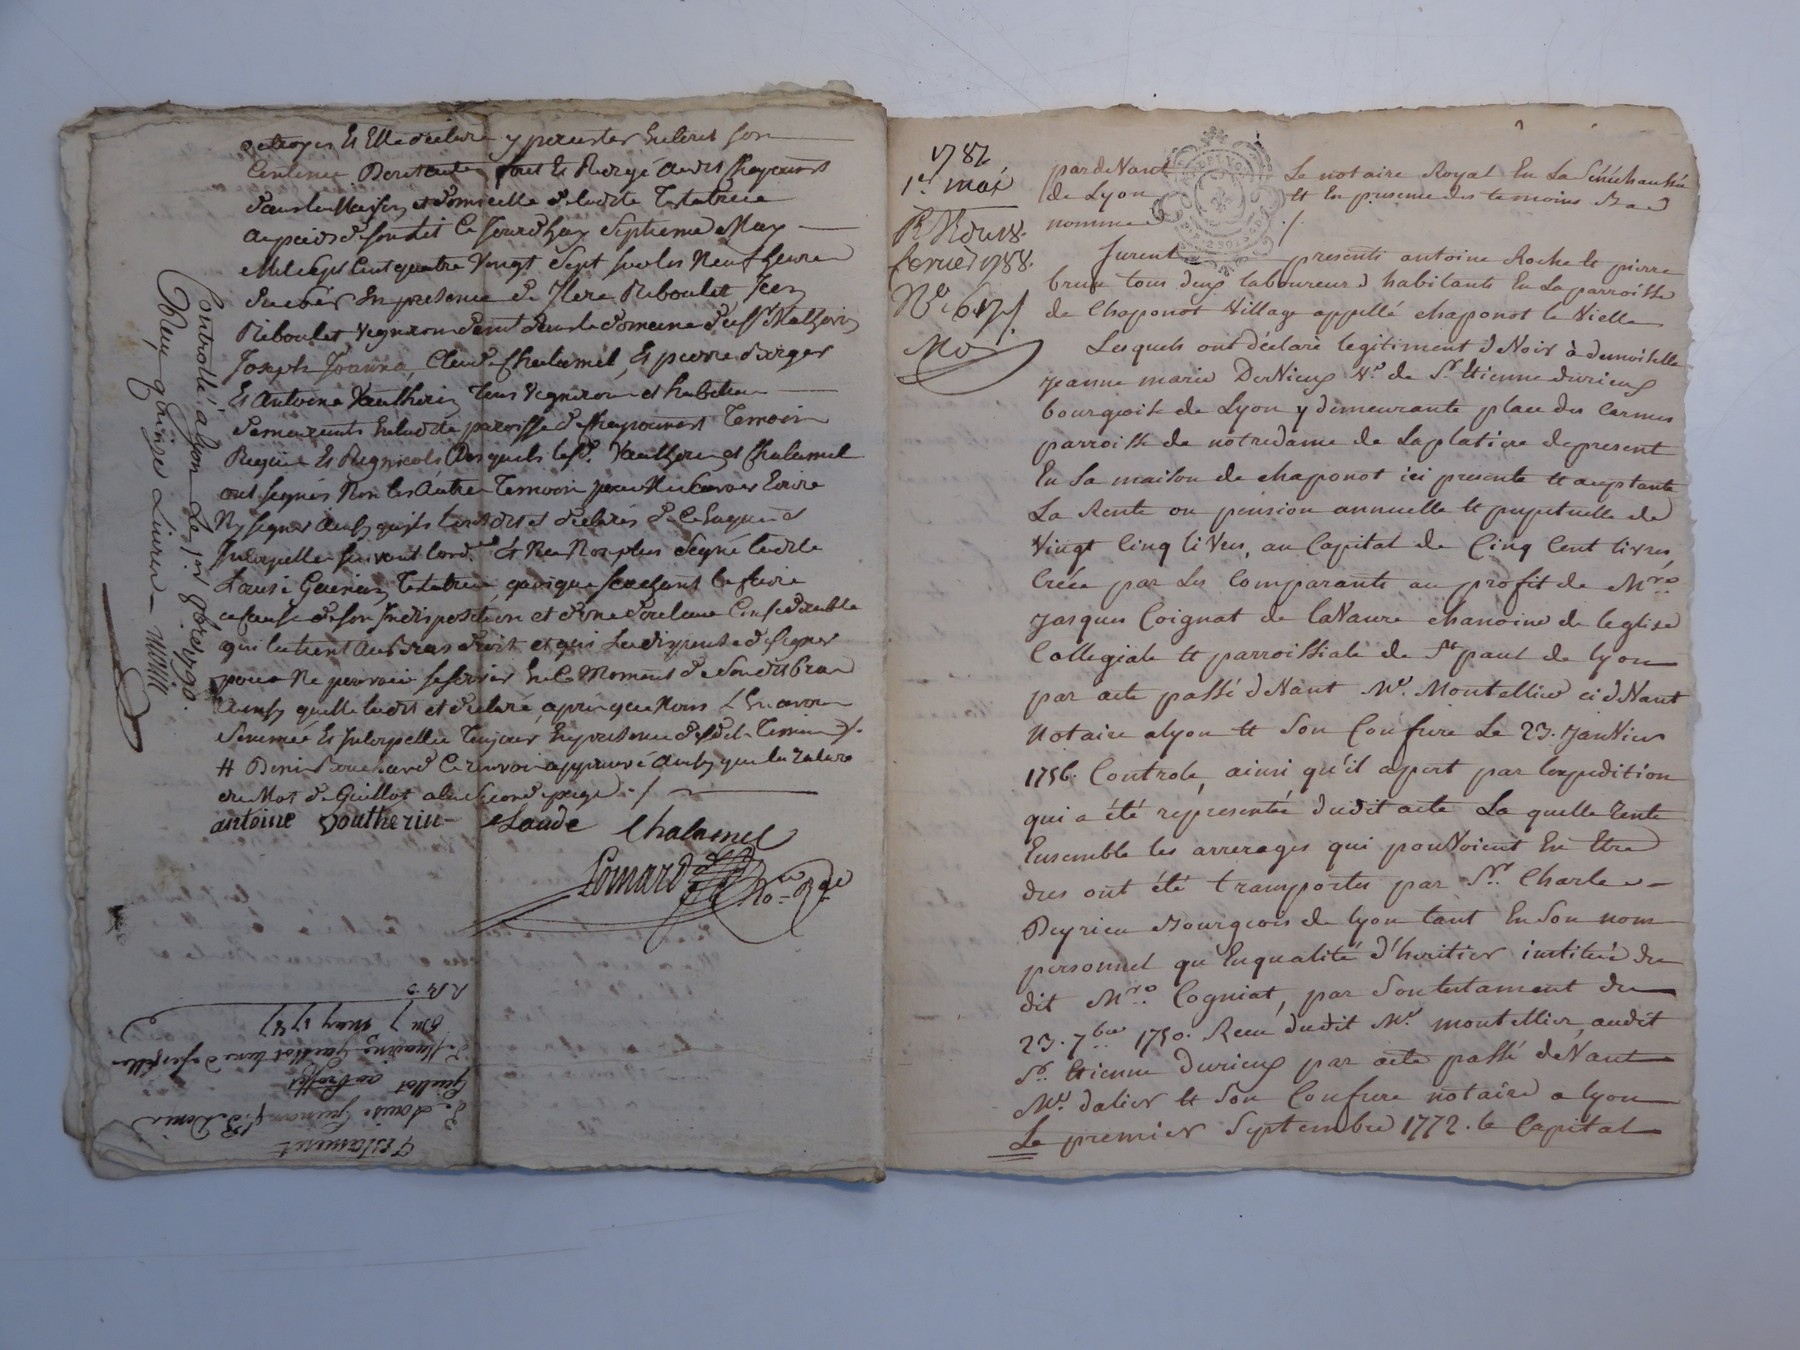 octroyer Et Elle declare y persister
Continue Dont acte fait Et Redigé audit Chaponost
dans la Maison et domicille de ladite Testatrice
au pieds de son lit Ce Jourd'huy Septieme May
Mil Sept Cent quatre Vingt Sept sur les Neuf heures
du soir En presence de Riboulet, Jean
Riboulet, Vigneron dans le domaine de Sr Mathevin
Joseph Joanna, Claude Chalamel, Et pierre
Et Antoine Vautherin Tous Vigneron et habitans
demeurants En ladite paroisse de Chaponnost Temoin
Requis Et Regnicols, Desquels lesd. Vautherin et Chalamel
ont Signés Non les Autres Temoin pour Ne Savoir Ecrire
Ny Signer Ainsy quils l'ont dit et declarés de Ce Enquis et
Interpellés suivant l'ord.ce Et Na Non plus Signé ladite
Louise Testatrice, quoique Sachant le faire
a Cause de Son Indisposition et d'une douleur Considerable
qui la tient Au Bras droit et qui la dispense de Signer
pour Ne pouvoir se servir En Ce Moment de Son dit bras
Ainsy quelle la dit et declaré, après que Nous l'En avons
Sommée Et Interpellée Toujours En presence desdit. Temoin
# Denis Bouchard Ce renvoi approuvé Ainsy que la rature
du Mot de Guillot a la Seconde page ./.
antoine Voutherin Claude Chalamel
Pomard No.re R.al
Controllé a Lyon Le 1er 8bre 1790.
Reçu quinze Livres
Testament
De Louise
Guillot
du 7 may 1787
1787
1er mai
R Rdu 18.
fevrier 1788.
No. 617
par deVant Le notaire Royal En La Sénéchaussée
de Lyon Et En presence des temoins
nommé ./.
furent presents antoine Roche Et pierre
brun tous deux laboureurs habitants En La parroisse
de Chaponot Village appellé chaponot le Vielle
Lesquels ont déclaré legitiment deVoir à demoiselle
jeanne marie DerVieux Ve. de Sr Etienne durieux
bourgeois de Lyon y demeurante place des Carmes
parroisse de notredame de Laplatiere depresent
En Sa maison de chaponot ici presente Et acceptante
La Rente ou pension annuelle Et perpetuelle de
Vingt Cinq liVres, au Capital de Cinq Cent livres,
Créée par Les Comparants au profit de Mre
jacques Coignat de laVaure chanoine de leglise
Collegiale Et parroissiale de St paul de lyon
par acte passé deVant Me. Montellier ci deVant
Notaire alyon Et Son Confrere Le 23. janVier
1756. Controlé, ainsi qu'il apert par lexpedition
qui a été representée dudit acte La quelle Rente
Ensemble les arrerages qui pouVoient En Etre
dus ont été transportés par Sr. Charles
Peyrieu Bourgeois de lyon tant En Son nom
personnel qu'En qualité d'heritier institué du
dit Mre Cogniat, par Son testament du
23. 7bre 1750. Recu dudit Me. montellier, audit
Sr. Etienne Durieux par acte passé deVant
Me. dalier Et Son Confrere notaire a lyon
Le premier Septembre 1772. le Capital